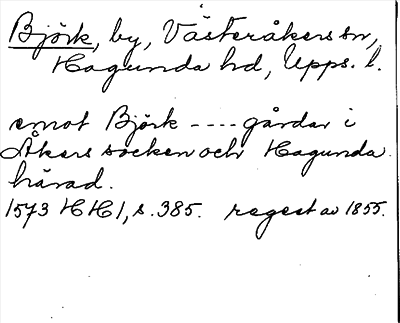 Björk, by, Västeråkers sn,
Hagunda hd, Upps. l.
emot Björk ---- gårdar i
Åkers socken och Hagunda
härad.
1573 HH 1, s. 385. regest av 1855.